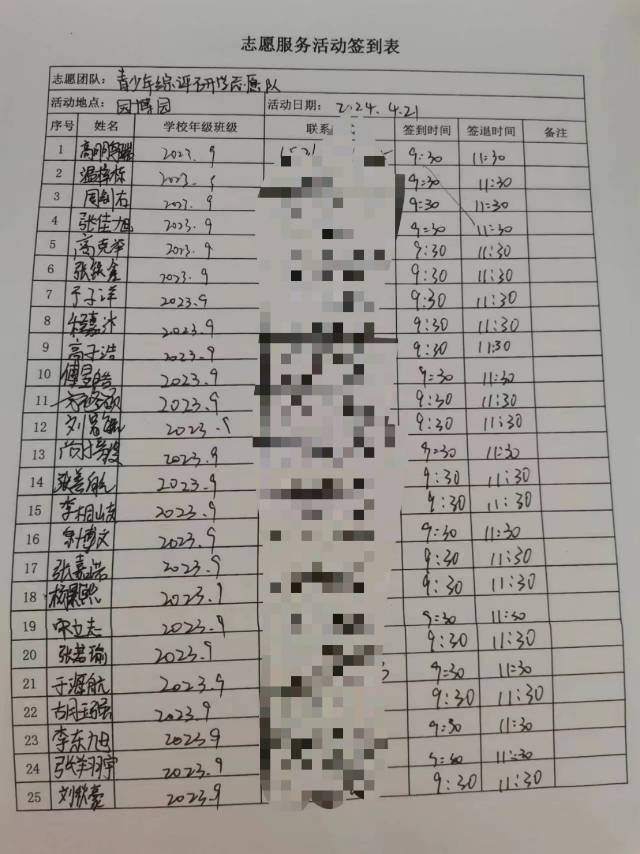 志愿服务活动签到表
志愿团队: 青少年综评研学志愿队
活动地点: 园博园 活动日期: 2024.4.21
序号 姓名 学校年级班级 联系 签到时间 签退时间 备注
1 2023.9 9:30 11:30
2 温梓栋 2023.9 9:30 11:30
3 周剑右 2023.9 9:30 11:30
4 张佳旭 2023.9 9:30 11:30
5 高克华 2023.9 9:30 11:30
6 张铁金 2023.9 9:30 11:30
7 于子洋 2023.9 9:30 11:30
8 2023.9 9:30 11:30
9 高子浩 2023.9 9:30 11:30
10 傅昱皓 2023.9 9:30 11:30
11 2023.9 9:30 11:30
12 2023.9 9:30 11:30
13 2023.9 9:30 11:30
14 梁善航 2023.9 9:30 11:30
15 李桐 2023.9 9:30 11:30
16 博文 2023.9 9:30 11:30
17 张嘉诺 2023.9 9:30 11:30
18 杨 2023.9 9:30 11:30
19 宋立志 2023.9 9:30 11:30
20 张若瑜 2023.9 9:30 11:30
21 于源航 2023.9 9:30 11:30
22 2023.9 9:30 11:30
23 李东旭 2023.9 9:30 11:30
24 张羽宇 2023.9 9:30 11:30
25 刘钦豪 2023.9 9:30 11:30